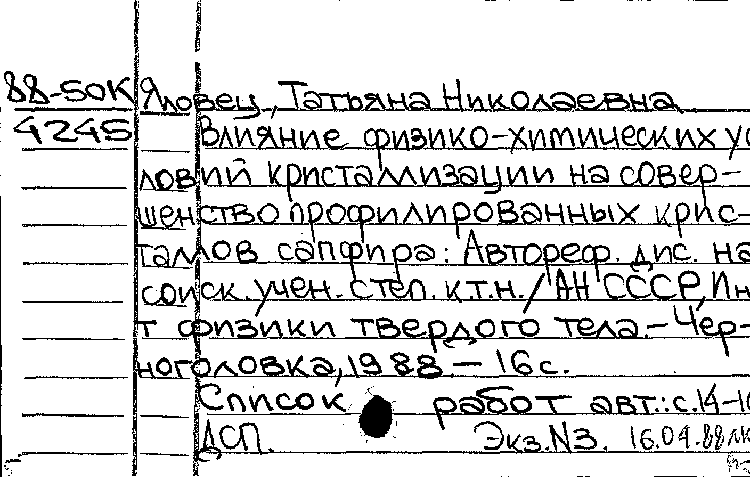 88-50К Яловец, Татьяна Николаевна
4245 Влияние физико-химических ус
ловий кристаллизации на совер-
шенство профилированных крис-
таллов сапфира: Автореф. дис. на
соиск. учен. степ. к.т.н./АН СССР, Ин-
т физики твердого тела.- Чер-
ноголовка, 1988.- 16 с.
Список работ авт.: с.14-16
ДСП. Экз.N3. 16.04.88